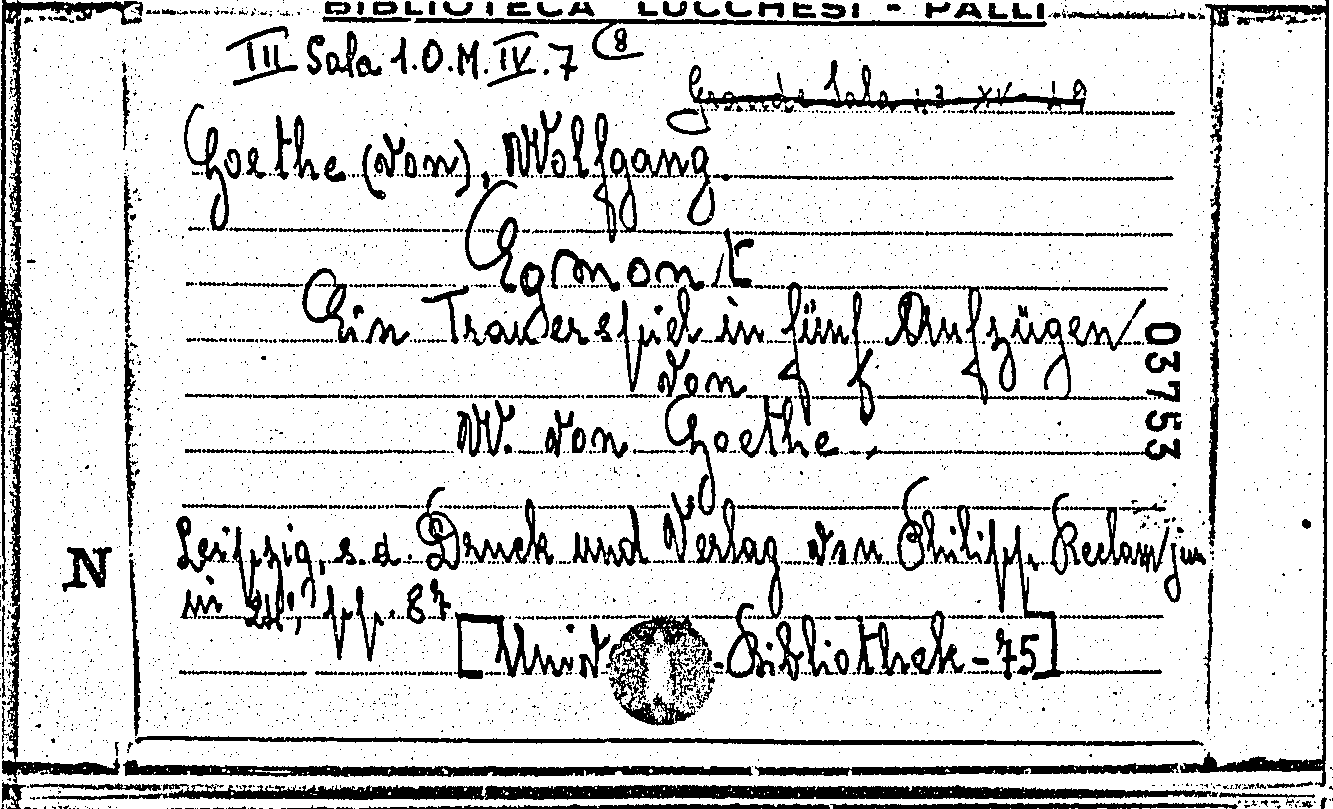 BIBLIOTECA LUCCHESI - PALLI
III Sala 1.O.M.IV.7 (8)
Grande Sala
Goethe (von), Wolfgang.
Egmont
Ein Trauerspiel in fünf Aufzügen/
von
W. von Goethe.
03753
Leipzig, s.d. Druck und Verlag von Philipp Reclam jun
N
in 24°, pp. 87
[Univ -Bibliothek - 75]